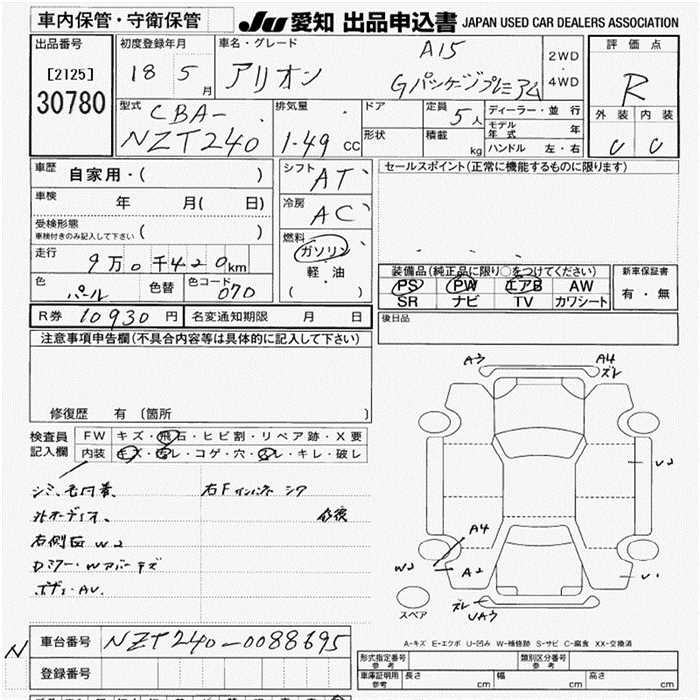 車内保管・守衛保管
JU 愛知 出品申込書 JAPAN USED CAR DEALERS ASSOCIATION
出品番号
[2125]
30780
初度登録年月
18 5 月
車名・グレード
A15
アリオン Gパッケージプレミアム
2WD
・
4WD
評価点
R
外装 内装
U U
型式
CBA-
NZT240
排気量
1.49 CC
ドア
形状
定員
5人
積載 kg
ディーラー・並行
モデル年式 年
ハンドル 左・右
車歴
自家用・( )
車検
年 月( 日)
受検形態
車検付きのみ記入して下さい ( )
走行
9万0千420km
色
パール
色替
色コード
070
シフト
AT
冷房
AC
燃料
ガソリン
軽・油
( )
セールスポイント(正常に機能するものに限ります)
装備品(純正品に限り○をつけてください)
PS PW エアB AW
SR ナビ TV カワシート
新車保証書
有・無
後日品
R券 10930 円 名変通知期限 月 日
注意事項申告欄(不具合内容等は具体的に記入して下さい)
修復歴 有 (箇所 )
検査員
記入欄
FW キズ・飛石・ヒビ割・リペア跡・X要
内装 キズ・汚レ・コゲ・穴・スレ・キレ・破レ
外オーディオ、
右側面 W2
Dミラー・Wアバーキズ
ボディAV.
右Fインパネ シワ
A3
A4
ズレ
U2
A4
W2
A2
U1
ズレ
UA3
スペア
A-キズ E-エクボ U-凹み W-補修跡 S-サビ C-腐食 XX-交換済
N
車台番号 NZT240-0088695
登録番号
形式指定番号
参考
類別区分番号
参考
車庫証明用
参考
長さ cm 幅 cm 高さ cm